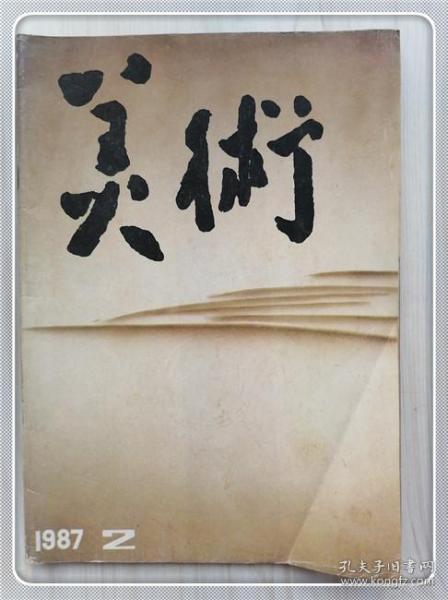 美術
1987 2
孔夫子旧书网
www.kongfz.com